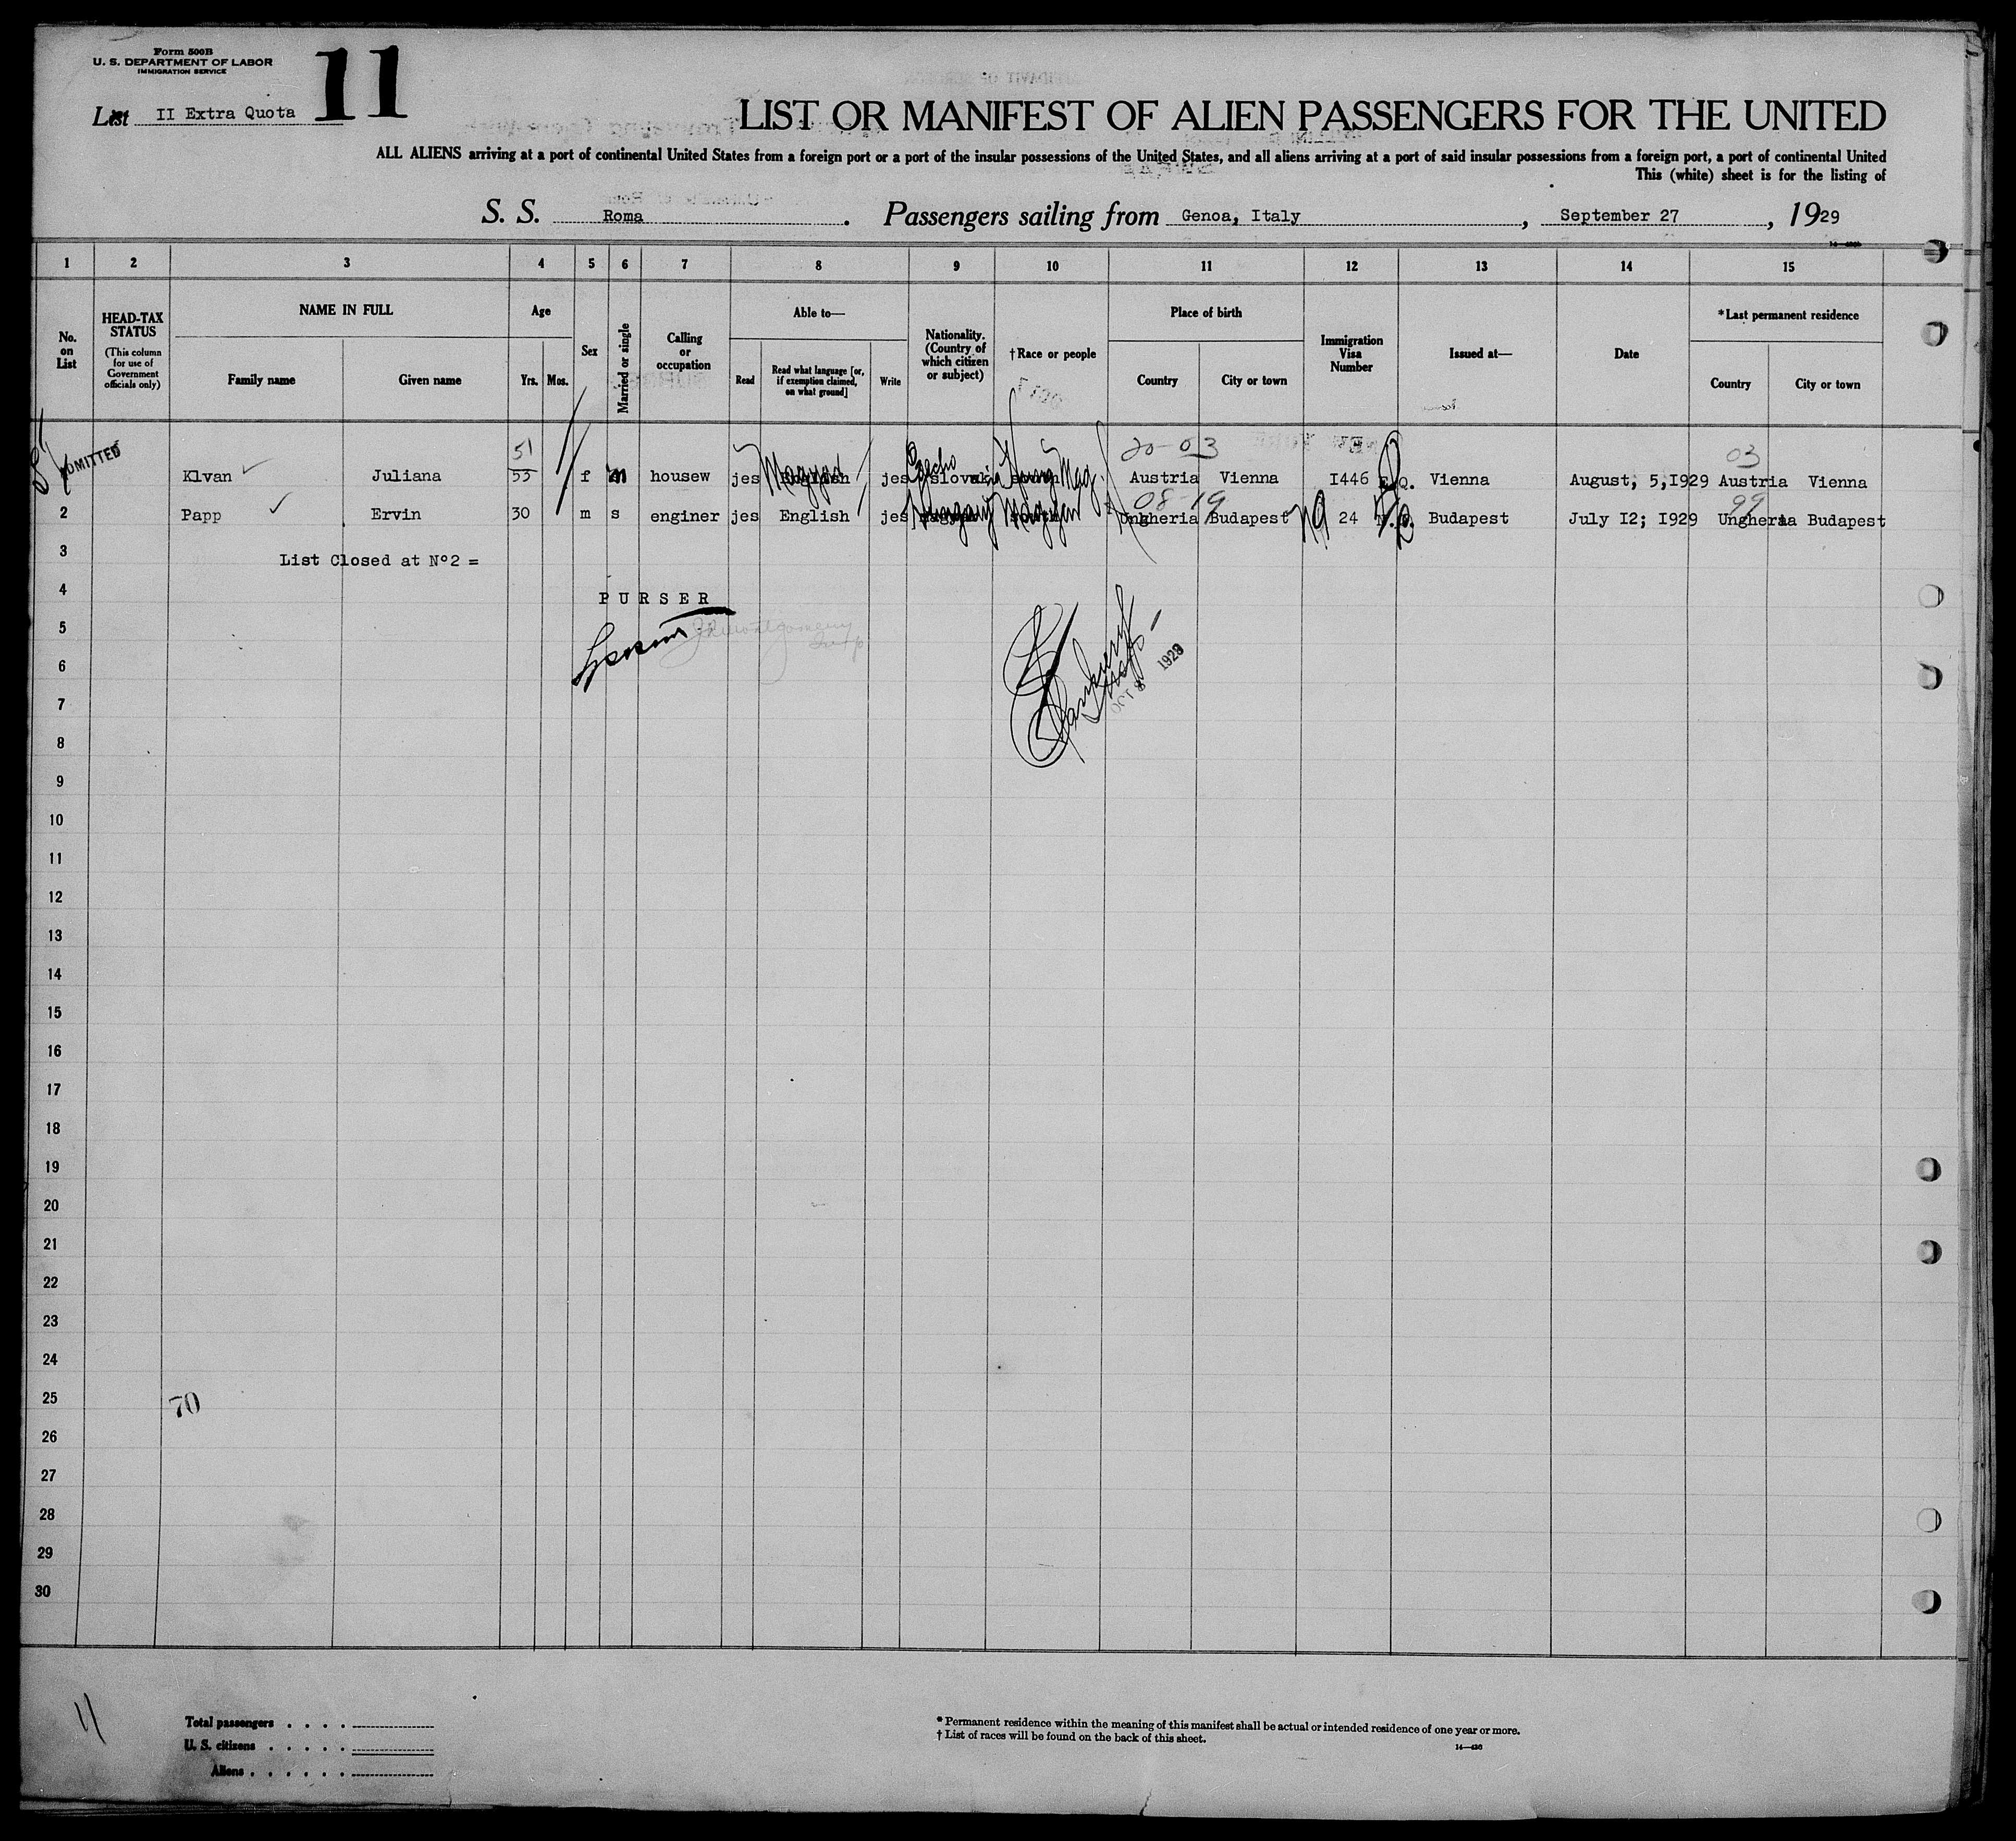 Form 500B
U. S. DEPARTMENT OF LABOR
IMMIGRATION SERVICE
11
List II Extra Quota
LIST OR MANIFEST OF ALIEN PASSENGERS FOR THE UNITED
ALL ALIENS arriving at a port of continental United States from a foreign port or a port of the insular possessions of the United States, and all aliens arriving at a port of said insular possessions from a foreign port, a port of continental United
This (white) sheet is for the listing of
S. S. Roma. Passengers sailing from Genoa, Italy, September 27, 1929
1 2 3 4 5 6 7 8 9 10 11 12 13 14 15
No. on List
HEAD-TAX STATUS (This column for use of Government officials only)
NAME IN FULL
Family name Given name
Age
Yrs. Mos.
Sex
Married or single
Calling or occupation
Able to—
Read
Read what language [or, if exemption claimed, on what ground]
Write
Nationality. (Country of which citizen or subject)
†Race or people
Place of birth
Country City or town
Immigration Visa Number
Issued at—
Date
*Last permanent residence
Country City or town
51 20-03 03
ADMITTED Klvan Juliana 55 f m housew jes Magyar jes Czecho slovakia Mag. Austria Vienna I446 Q. Vienna August, 5,I929 Austria Vienna
08-19 99
2 Papp Ervin 30 m s enginer jes English jes Hungary Magyar Ungheria Budapest 24 Budapest July I2; I929 Ungheria Budapest
3 List Closed at N°2 =
4 PURSER
5
6
OCT 8 1929
7
8
9
10
11
12
13
14
15
16
17
18
19
20
21
22
23
24
25 70
26
27
28
29
30
11
Total passengers
U. S. citizens
Aliens
* Permanent residence within the meaning of this manifest shall be actual or intended residence of one year or more.
† List of races will be found on the back of this sheet.